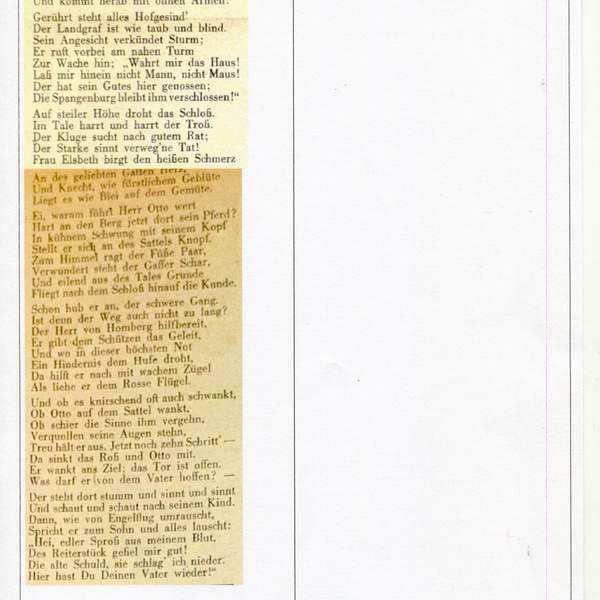 Und kommt herab mit offnen Armen!
Gerührt steht alles Hofgesind'
Der Landgraf ist wie taub und blind.
Sein Angesicht verkündet Sturm;
Er ruft vorbei am nahen Turm
Zur Wache hin; „Wahrt mir das Haus!
Laß mir hinein nicht Mann, nicht Maus!
Der hat sein Gutes hier genossen;
Die Spangenburg bleibt ihm verschlossen!"
Auf steiler Höhe droht das Schloß.
Im Tale harrt und harrt der Troß.
Der Kluge sucht nach gutem Rat;
Der Starke sinnt verweg'ne Tat!
Frau Elsbeth birgt den heißen Schmerz
An des geliebten Gatten Herz,
Und Knecht, wie fürstlichem Geblüte
Liegt es wie Blei auf dem Gemüte.
Ei, warum führt Herr Otto wert
Hart an den Berg jetzt dort sein Pferd?
In kühnem Schwung mit seinem Kopf
Stellt er sich an des Sattels Knopf.
Zum Himmel ragt der Füße Paar,
Verwundert steht der Gaffer Schar,
Und eilend aus des Tales Grunde
Fliegt nach dem Schloß hinauf die Kunde.
Schon hub er an, der schwere Gang.
Ist denn der Weg auch nicht zu lang?
Der Herr von Homberg hilfbereit,
Er gibt dem Schützen das Geleit,
Und wo in dieser höchsten Not
Ein Hindernis dem Hufe droht,
Da hilft er nach mit wachem Zügel
Als liehe er dem Rosse Flügel.
Und ob es knirschend oft auch schwankt,
Ob Otto auf dem Sattel wankt,
Ob schier die Sinne ihm vergehn,
Verquollen seine Augen stehn,
Treu hält er aus. Jetzt noch zehn Schritt' —
Da sinkt das Roß und Otto mit.
Er wankt ans Ziel; das Tor ist offen.
Was darf er von dem Vater hoffen? —
Der steht dort stumm und sinnt und sinnt
Und schaut und schaut nach seinem Kind.
Dann, wie von Engelflug umrauscht,
Spricht er zum Sohn und alles lauscht:
„Hei, edler Sproß aus meinem Blut,
Des Reiterstück gefiel mir gut!
Die alte Schuld, sie schlag' ich nieder.
Hier hast Du Deinen Vater wieder!"